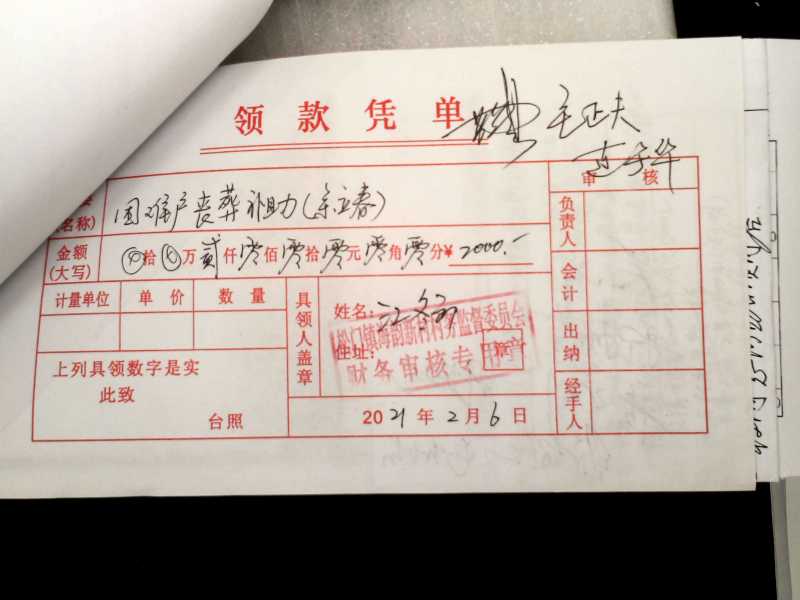 领款凭单
毛正夫
审核
(名称)
困难户丧葬补助(余立春)
金额(大写) ⊗拾⊗万贰仟零佰零拾零元零角零分¥2000.-
计量单位 单价 数量
具领人盖章
姓名:
住址:
松门镇海韵新村村务监督委员会
财务审核专用章
上列具领数字是实
此致
台照
2021年2月6日
负责人
会计
出纳
经手人